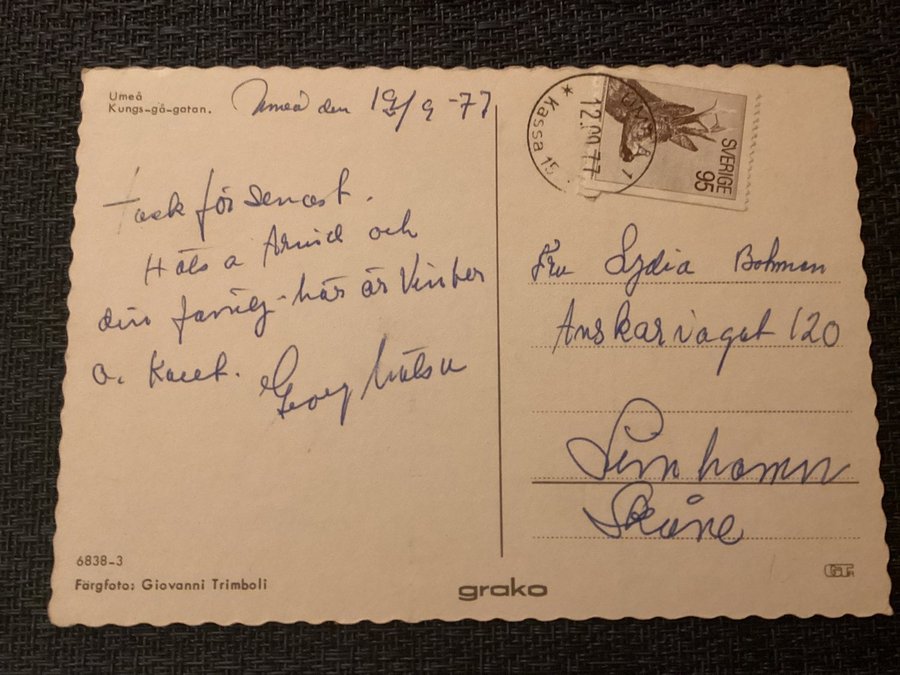 Umeå
Kungs-gå-gatan.
Umeå den 12/9 -77
Tack för senast.
Hälsa Arvid och
din familj - här är Vinter
o. Kallt.
Georg
UMEÅ 1
12.09.77
* Kassa 15
SVERIGE
95
Fru Lydia Bohman
Anskarivaget 120
Limhamn
Skåne
6838-3
Färgfoto: Giovanni Trimboli
grako